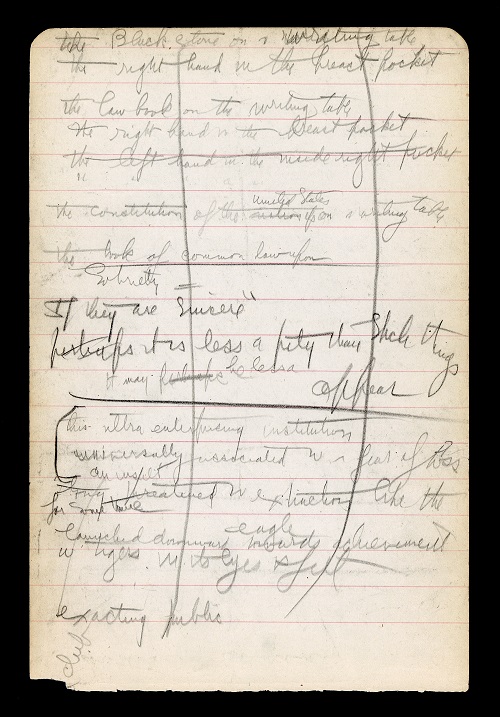 the Blackstone on a writing table
the right hand in the breast pocket
the law book on the writing table
the right hand in the breast pocket
the left hand in the inside right pocket
" "
United States
the constitution of the upon a writing table
the book of common law upon
Sobriety
If they are sincere"
perhaps it is less a pity than such things
it may perhaps be less a
appear
this ultra enterprising institution
universally associated w a fear of
threatened w extinction like the
for some time
eagle
launched downward towards achievement
w tigers in its eyes &
exacting public